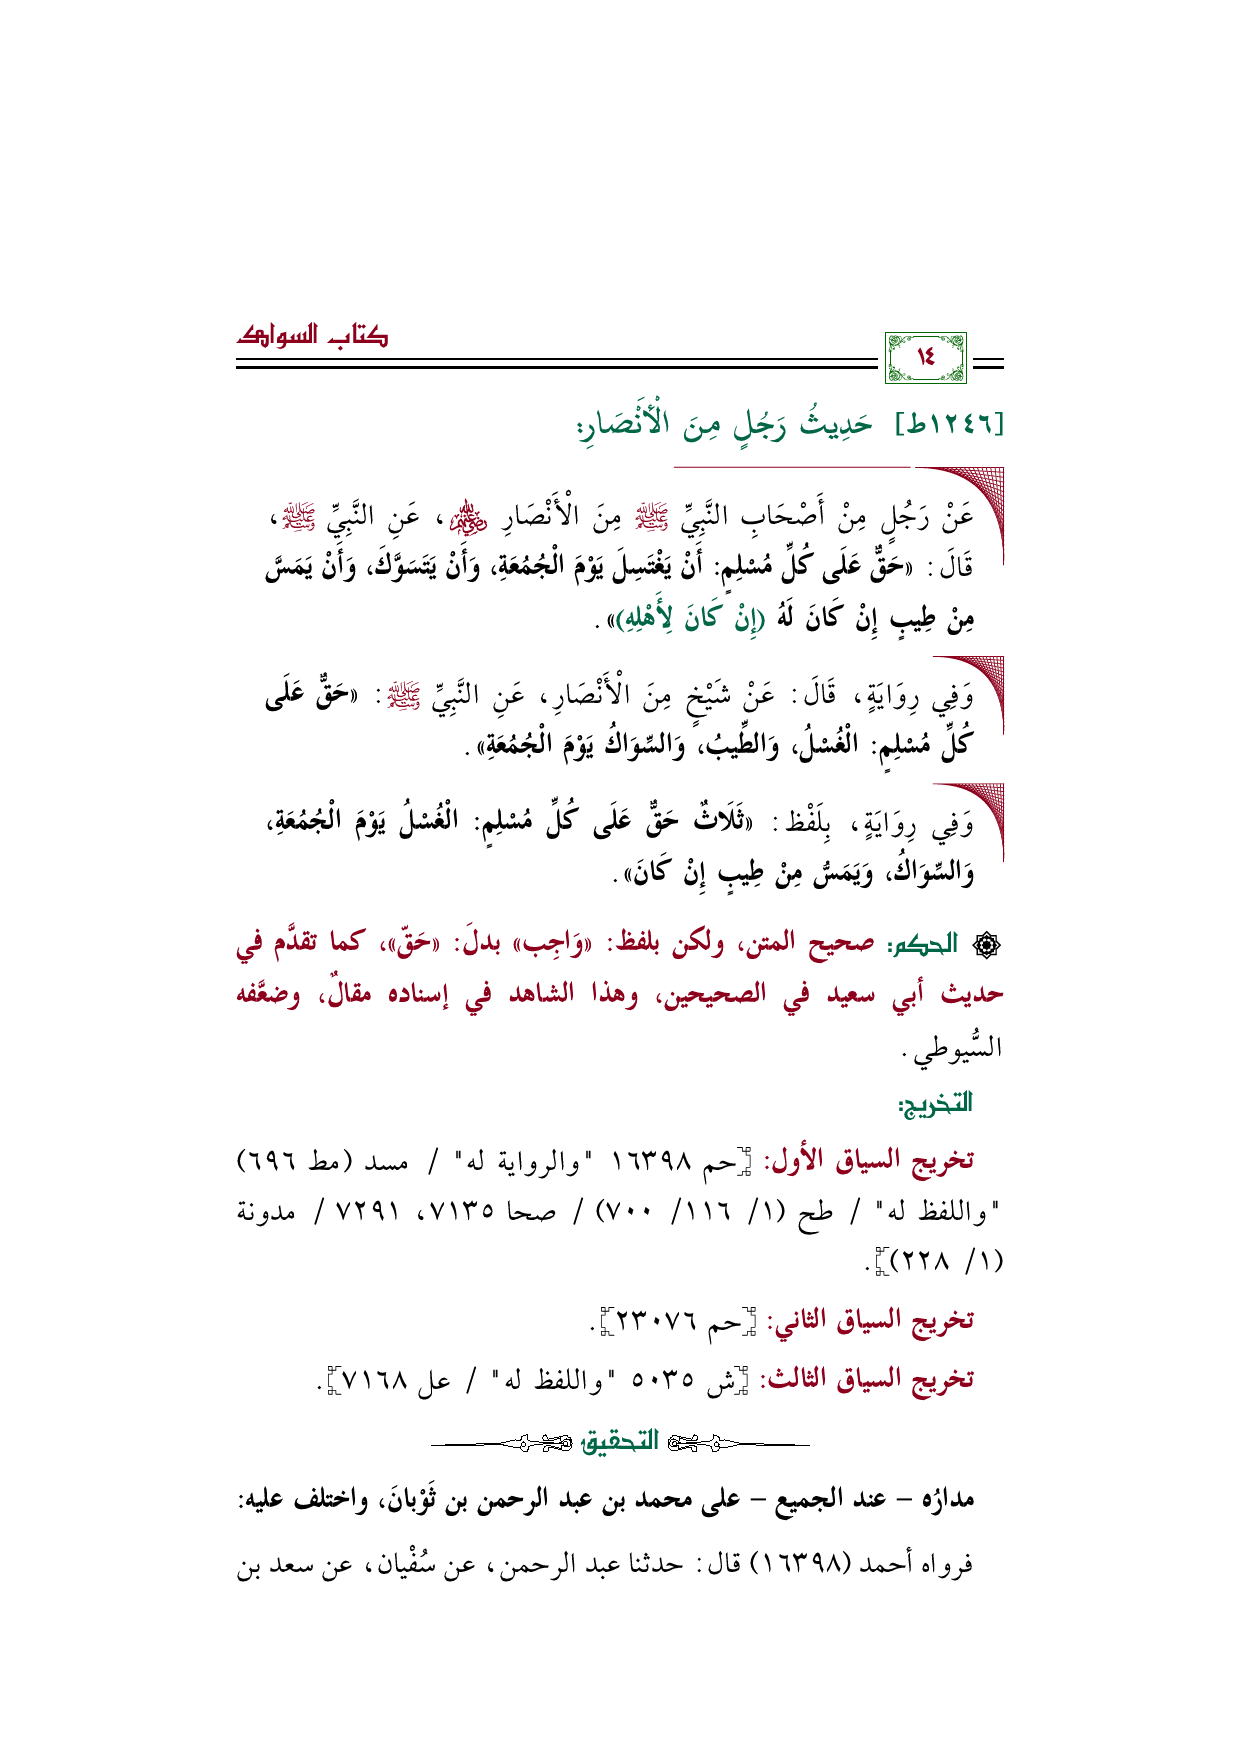 كتاب السواك
١٤
[١٢٤٦ط] حَدِيثُ رَجُلٍ مِنَ الْأَنْصَارِ:
عَنْ رَجُلٍ مِنْ أَصْحَابِ النَّبِيِّ ﷺ مِنَ الْأَنْصَارِ رضي الله عنه، عَنِ النَّبِيِّ ﷺ،
قَالَ: «حَقٌّ عَلَى كُلِّ مُسْلِمٍ: أَنْ يَغْتَسِلَ يَوْمَ الْجُمُعَةِ، وَأَنْ يَتَسَوَّكَ، وَأَنْ يَمَسَّ
مِنْ طِيبٍ إِنْ كَانَ لَهُ (إِنْ كَانَ لِأَهْلِهِ)».
وَفِي رِوَايَةٍ، قَالَ: عَنْ شَيْخٍ مِنَ الْأَنْصَارِ، عَنِ النَّبِيِّ ﷺ: «حَقٌّ عَلَى
كُلِّ مُسْلِمٍ: الْغُسْلُ، وَالطِّيبُ، وَالسِّوَاكُ يَوْمَ الْجُمُعَةِ».
وَفِي رِوَايَةٍ، بِلَفْظ: «ثَلَاثٌ حَقٌّ عَلَى كُلِّ مُسْلِمٍ: الْغُسْلُ يَوْمَ الْجُمُعَةِ،
وَالسِّوَاكُ، وَيَمَسُّ مِنْ طِيبٍ إِنْ كَانَ».
الحكم: صحيح المتن، ولكن بلفظ: «وَاجِب» بدلَ: «حَقّ»، كما تقدَّم في
حديث أبي سعيد في الصحيحين، وهذا الشاهد في إسناده مقالٌ، وضعَّفه
السُّيوطي.
التخريج:
تخريج السياق الأول: [حم ١٦٣٩٨ "والرواية له" / مسد (مط ٦٩٦)
"واللفظ له" / طح (١/ ١١٦/ ٧٠٠) / صحا ٧١٣٥، ٧٢٩١ / مدونة
(١/ ٢٢٨)].
تخريج السياق الثاني: [حم ٢٣٠٧٦].
تخريج السياق الثالث: [ش ٥٠٣٥ "واللفظ له" / عل ٧١٦٨].
التحقيق
مدارُه – عند الجميع – على محمد بن عبد الرحمن بن ثَوْبانَ، واختلف عليه:
فرواه أحمد (١٦٣٩٨) قال: حدثنا عبد الرحمن، عن سُفْيان، عن سعد بن